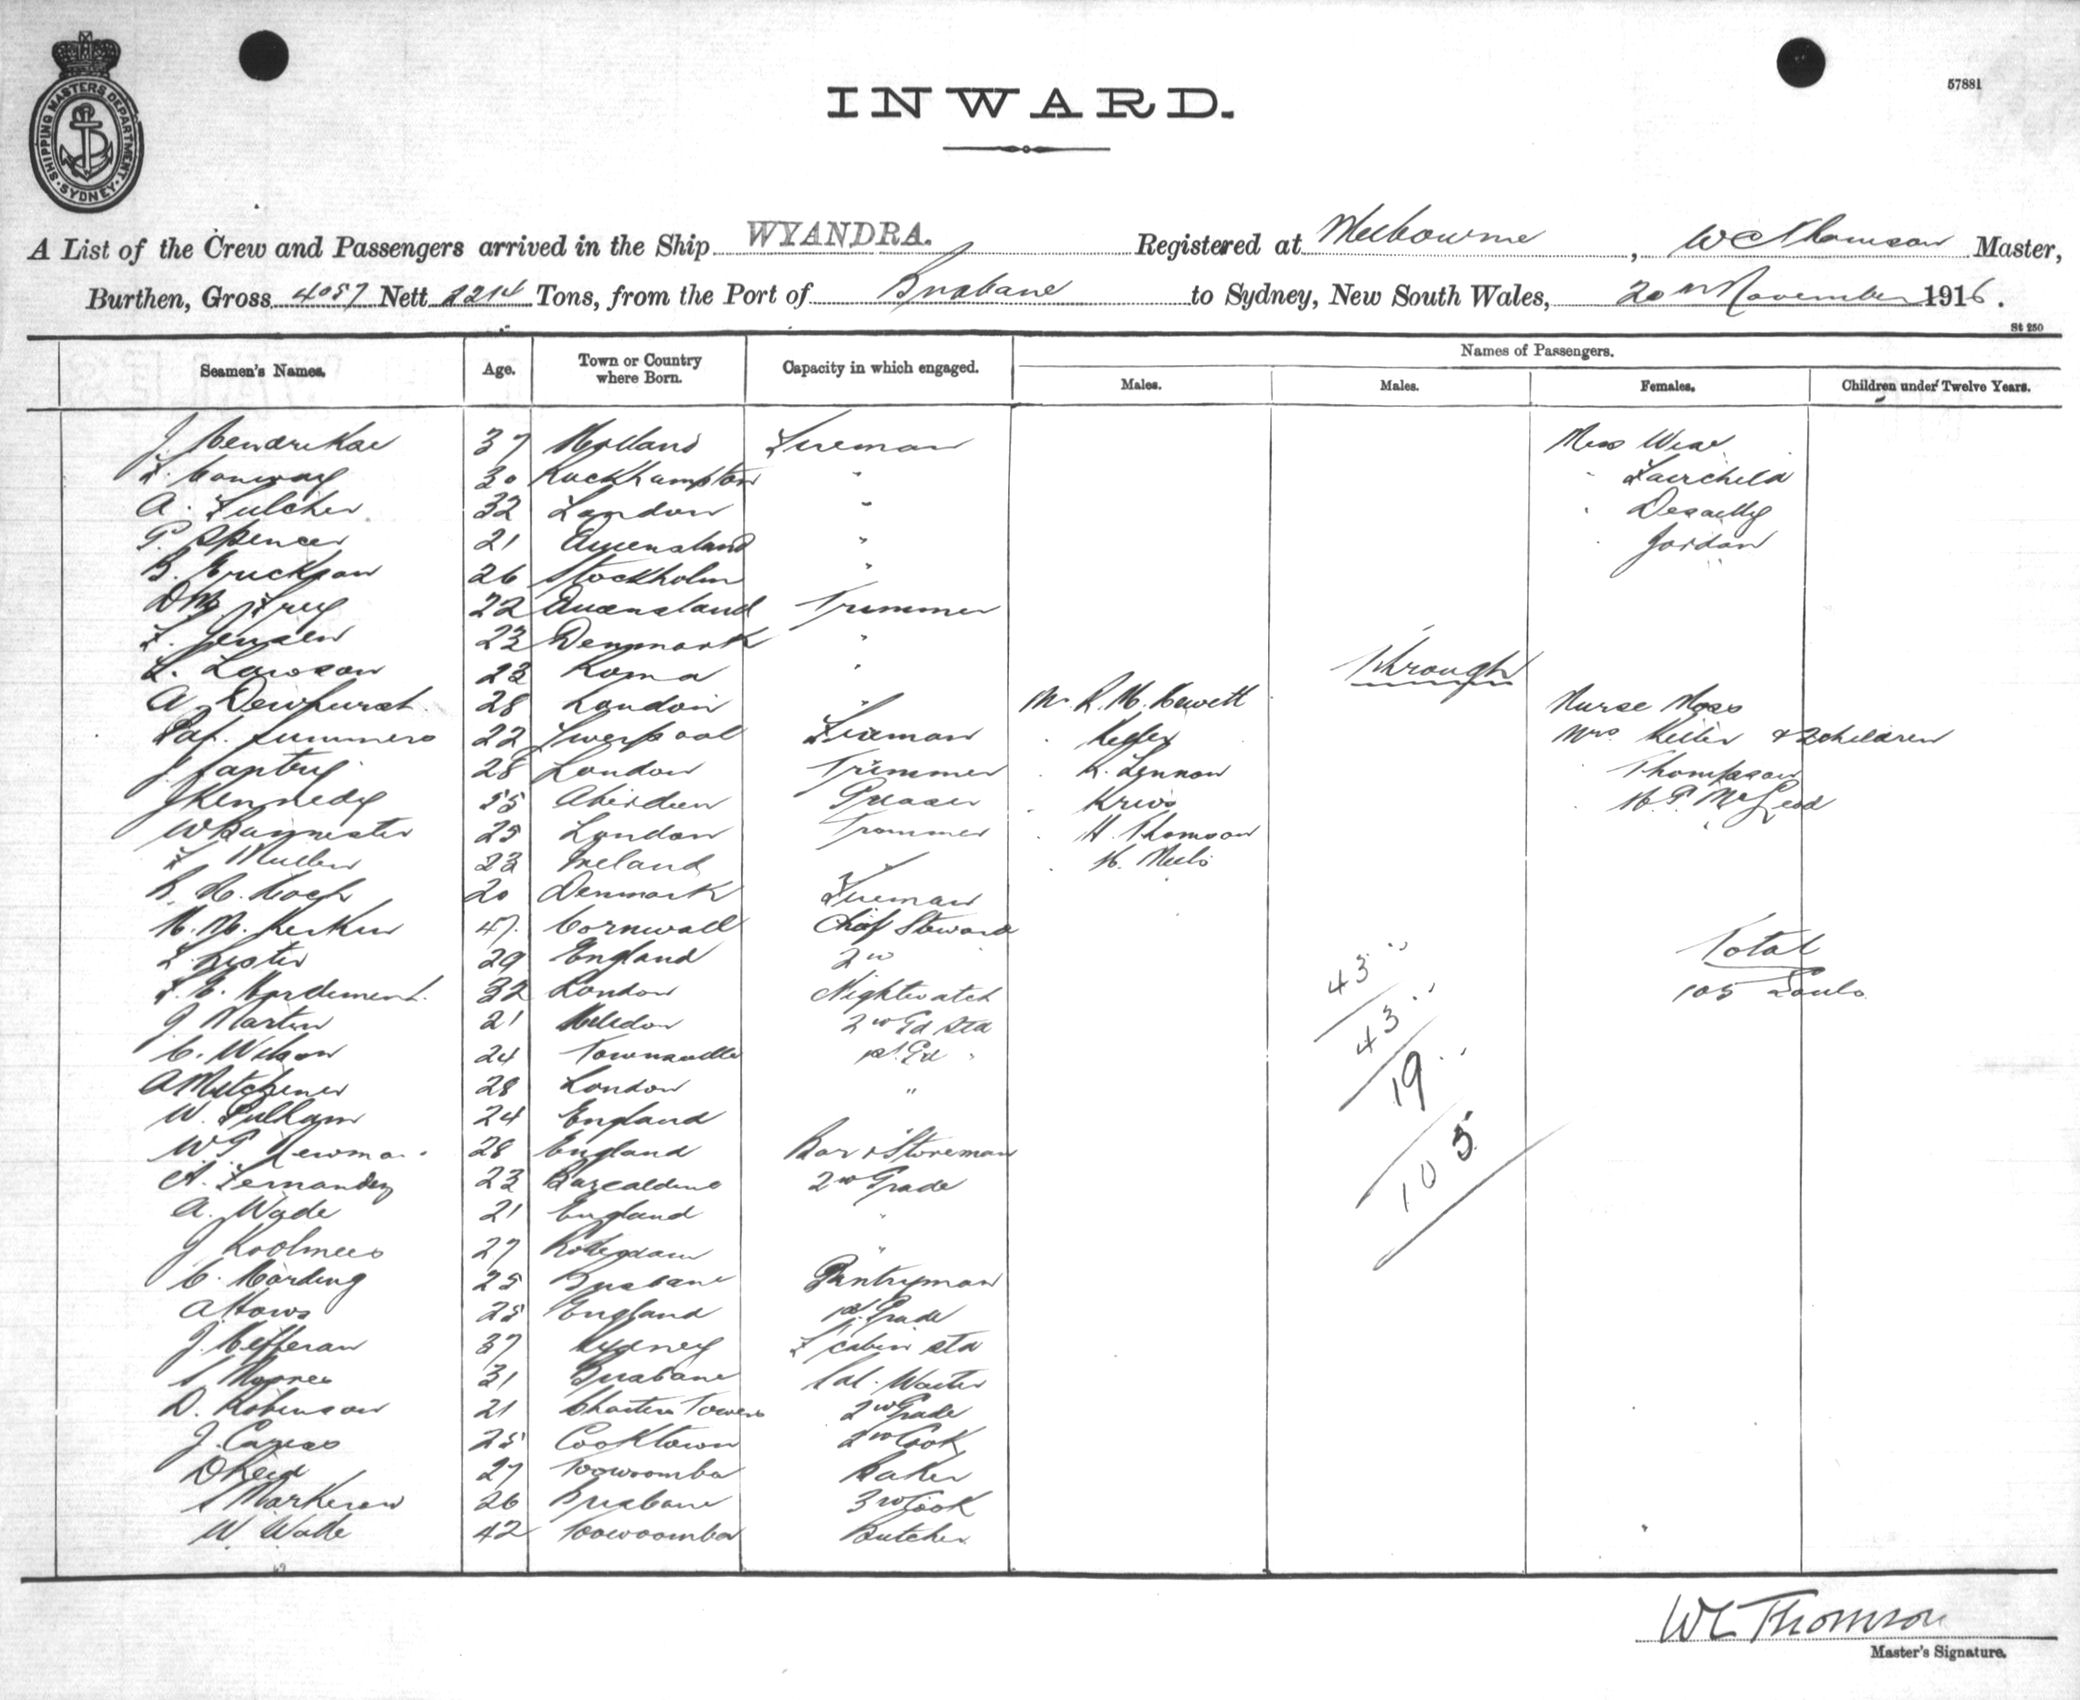 SHIPPING MASTERS DEPARTMENT
SYDNEY
57881
INWARD.
A List of the Crew and Passengers arrived in the Ship WYANDRA. Registered at Melbourne, W C Thomson Master,
Burthen, Gross 4057 Nett 2214 Tons, from the Port of Brisbane to Sydney, New South Wales, 20th November 1916.
St 250
Names of Passengers.
Seamen's Names. Age. Town or Country where Born. Capacity in which engaged. Males. Males. Females. Children under Twelve Years.
J. Hendrikse 37 Holland Fireman Miss Weir
F. Conway 30 Rockhampton " " Fairchild
A. Fulcher 32 London " " Desailly
P. Spencer 21 Queensland " " Jordan
B. Erickson 26 Stockholm "
22 Queensland Trimmer
F. Jensen 23 Denmark "
L. Lawson 23 Roma " Through
A. Dewhurst 28 London " Mr. R. H. Hewett Nurse Moss
Pat. Summers 22 Liverpool Fireman " Mrs. & 2 children
J. 28 London Trimmer " K. Lennon " Thompson
J Kennedy 55 Aberdeen Greaser " " McLeod
W Bannister 25 London Trimmer " H. Thomson
F. Mullen 23 Ireland " "
20 Denmark Fireman
47 Cornwall Chief Steward
L. Lister 29 England 2nd Total
32 London Nightwatch 43 105 Souls
J Martin 21 2nd Gd Std 43
C. Wilson 24 Townsville 1st Gd " 19
A Mitchener 28 London "
W. Pulham 24 England 105
W P Newma 28 England Bar & Storeman
A. Fernandez 23 Barcaldine 2nd Grade
A. Wade 21 England "
J Koolmees 27 Rotterdam "
C. Harding 25 Brisbane Pantryman
A Hows 25 England 1st Grade
J. Hefferan 37 Sydney F cabin std
S Moores 31 Brisbane Sal. Waiter
D. Robinson 21 Charters Towers 2nd Grade
J. 25 Cooktown 2nd Cook
D Reid 27 Toowoomba Baker
26 Brisbane 3rd Cook
W. Watle 42 Toowoomba Butcher
WC Thomson
Master's Signature.